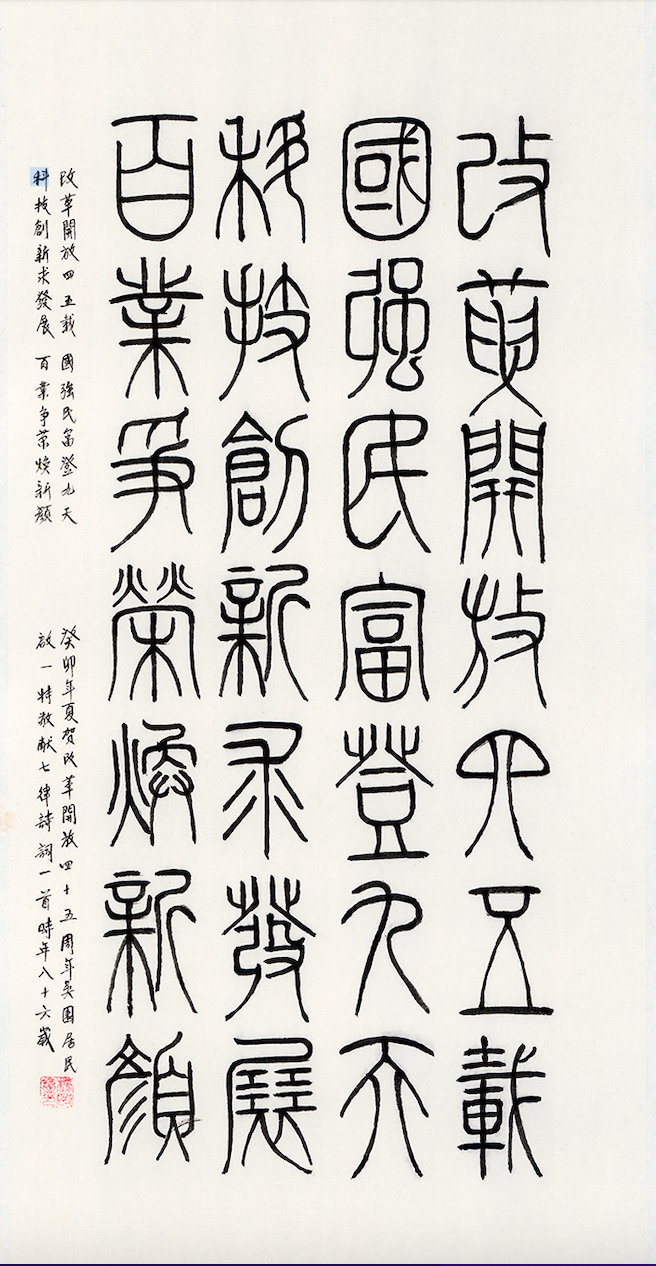 改革開放四五載
國強民富登九天
科技創新求發展
百業爭榮煥新顏
改革開放四五載 國強民富登九天
科技創新求發展 百業争荣煥新顏
癸卯年夏賀改革開放四十五周年吳園居民
啟一特敬献七律詩詞一首時年八十六歲